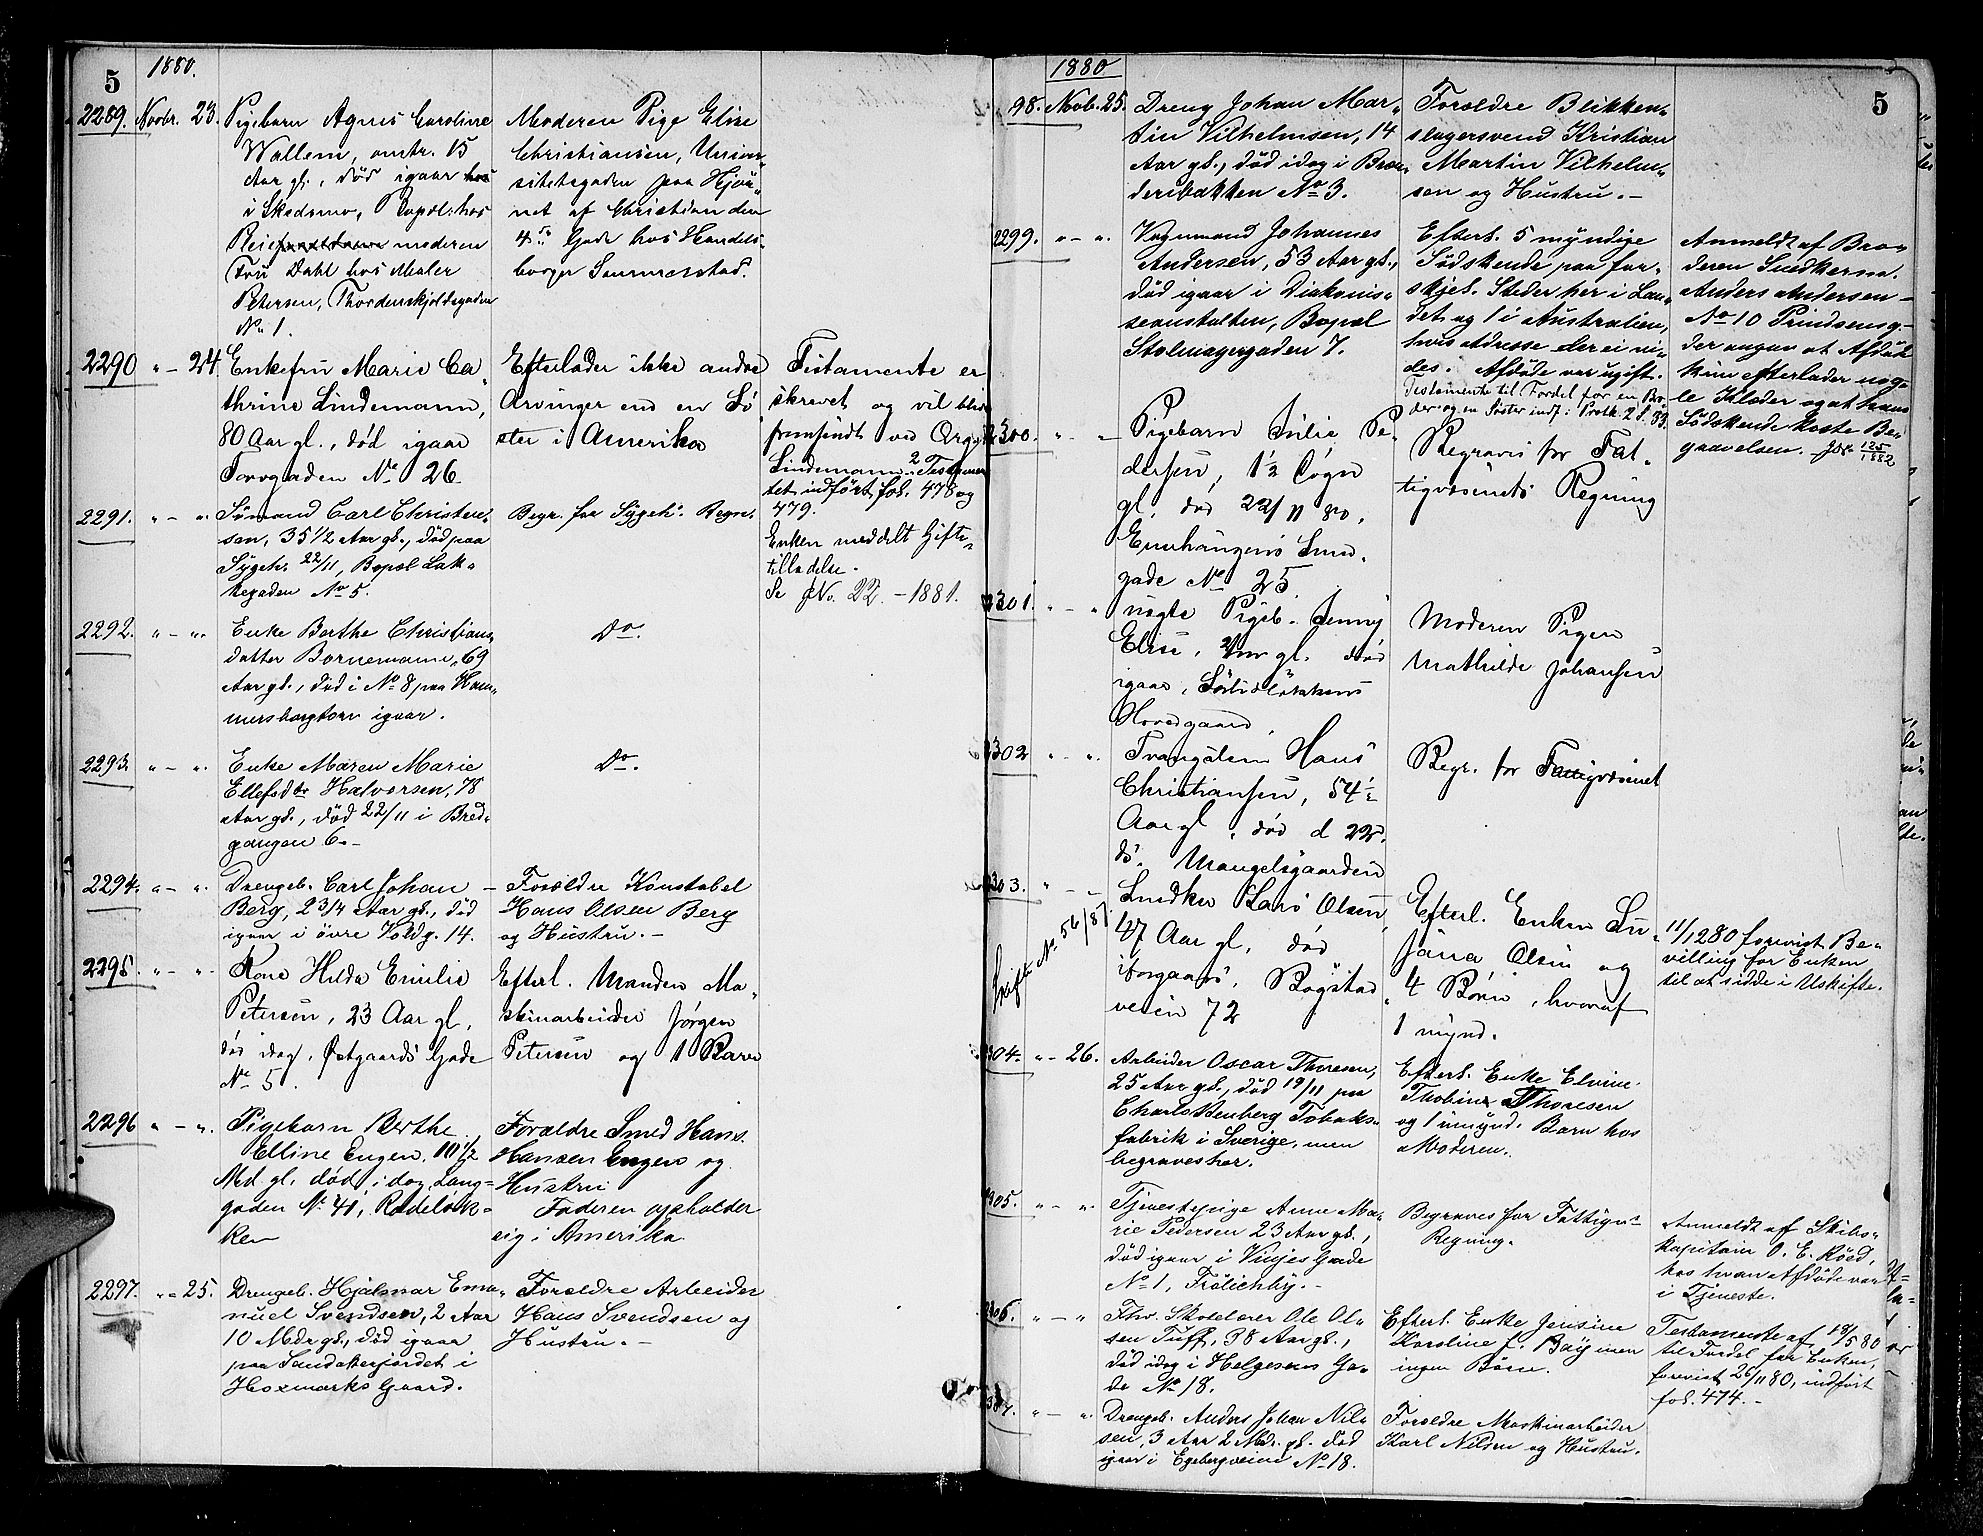 5
1880.
2289. Novbr. 23. Pigebarn Agnes Caroline
Wallem, omtr. 15
Aar gl., død igaar
i Skedsmo, Bopæl: hos
Pleiemoderen
Fru Dahl hos Maler
Petersen, Thordenskjoldsgaden
No 1.
Moderen Pige Elise
Christiansen, Univer-
sitetsgaden paa Hjør-
net af Christian den
4des Gade hos Handels-
borger Sommerstad.
2290 " - 24. Enkefru Marie Ca-
thrine Lindemann,
80 Aar gl., død igaar
Torvgaden No 26.
Efterlader ikke andre
Arvinger end en Sø-
ster i Amerika
Testamente er
skrevet og vil blive
fremsendt ved Org.
Lindemann. Testamen-
tet indført fol. 478 og
479.
2291. " - " Sømand Carl Christen-
sen, 35 1/2 Aar gl., død paa
Sygeh. 22/11, Bopæl Lak-
kegaden No 5.
Begr. for Sygeh. Regn.
Enken meddelt Gifte-
tilladelse.
Se No. 22. - 1881.
2292. " - " Enke Berthe Christians-
datter Bornemann, 69
Aar gl., død i No 8 paa Ham-
mersborgtorv igaar.
Do.
2293. " - " Enke Maren Marie
Ellefsdtr Halvorsen, 78
Aar gl., død 22/11 i Bred-
gangen 6. -
Do.
2294. " - " Drengeb. Carl Johan
Berg, 2 3/4 Aar gl., død
igaar i øvre Voldg. 14.
Forældre Konstabel
Hans Olsen Berg
og Hustru. -
2295. " - " Kone Hulda Emilie
Petersen, 23 Aar gl.,
død idag, Østgaards Gade
No 5.
Efterl. Manden Ma-
skinarbeider Jørgen
Petersen og 1 Barn
2296 " - " Pigebarn Berthe
Elline Engen, 10 1/2
Md. gl. død i dag, Lang-
gaden No 41, Rodeløk-
ken
Forældre Smed Hans
Hansen Engen og
Hustru
Faderen opholder
sig i Amerika.
2297. " - 25. Drengeb. Hjalmar Ema-
nuel Svendsen, 2 Aar
10 Mdr gl., død igaar
paa Sandakerjordet i
Hoxmarks Gaard.
Forældre Arbeider
Hans Svendsen og
Hustru. -
5
1880
98. Novb. 25. Dreng Johan Mar-
tin Vilhelmsen, 14
Aar gl., død idag i Bræn-
deribakken No 3.
Forældre Blikken-
slagersvend Kristian
Martin Vilhelm-
sen og Hustru. -
2299. " - " Vognmand Johannes
Andersen, 53 Aar gl.,
død igaar i Diakonis-
seanstalten, Bopæl
Stolmagergaden 7.
Efterl. 5 myndige
Sødskende paa for-
skjel. Steder her i Lan-
det og 1 i Australien,
hvis Adresse der ei vi-
des. Afdøde var ugift.
Testamente til Fordel for en Bro-
der og en Søster indf. i Protk. 2 f. 83.
Anmeldt af Bro-
deren Snedkerm.
Anders Andersen
No 10 Prindsensg.
der angav at Afdøde
kun efterlader nog-
le Klæder og at hans
Sødskende koste Be-
gravelsen. Jrn. 125/1882
2300. " - " Pigebarn Julie Pe-
dersen, 1 1/2 Døgn
gl., død 22/11 80,
Enerhaugens Smed-
gade No 25.
Begraves for Fat-
tigvæsenets Regning
2301. " - " uægte Pigeb. Jenny
Elise, 2 Aar gl. død
igaar, Sørlidløkkens
Hovedgaard,
Moderen Pigen
Mathilde Johansen
2302 " - " Tvangslem Hans
Christiansen, 54 1/2
Aar gl., død d 22d
ds. Mangelsgaarden
Begr. for Fattigvæsenet
2303. " - Snedker Lars Olsen,
47 Aar gl., død
iforgaars, Bogstad-
veien 72
Skifte No 56/87.
Efterl. Enken
Olsen og
4 Børn, hvoraf
1 mynd.
11/12 80 forevist Be-
villing for Enken
til at sidde i Uskifte.
2304. " - 26. Arbeider Oscar Thoresen,
25 Aar gl., død 19/11 paa
Charlottenberg Tobaks-
fabrik i Sverige, men
begraves her.
Efterl. Enke Elvine
Thobine Thoresen
og 1 umynd. Barn hos
Moderen.
2305. " - " Tjenestepige Anne Ma-
rie Pedersen 23 Aar gl.,
død igaar i Vinjes Gade
No 1, Frølichby. -
Begraves for Fattigv.
Regning.
Anmeldt af Skibs-
kapitain O. E. Röed,
hos hvem Afdøde var
i Tjeneste.
2306. " - " Fhv. Skolelærer Ole Ol-
sen Tuff, 38 Aar gl.,
død idag i Helgesens Ga-
de No 18.
Efterl. Enke Jensine
Karoline f. Bay men
ingen Børn.
Testamente af 18/5 80
til Fordel for Enken,
forevist 26/11 80, indført
fol. 474. -
2307. " - " Drengeb. Anders Johan Nil-
sen, 3 Aar 2 Mdr. gl. død
igaar i Egebergveien No 18.
Forældre Maskinarbeider
Karl Nilsen og Hustru.